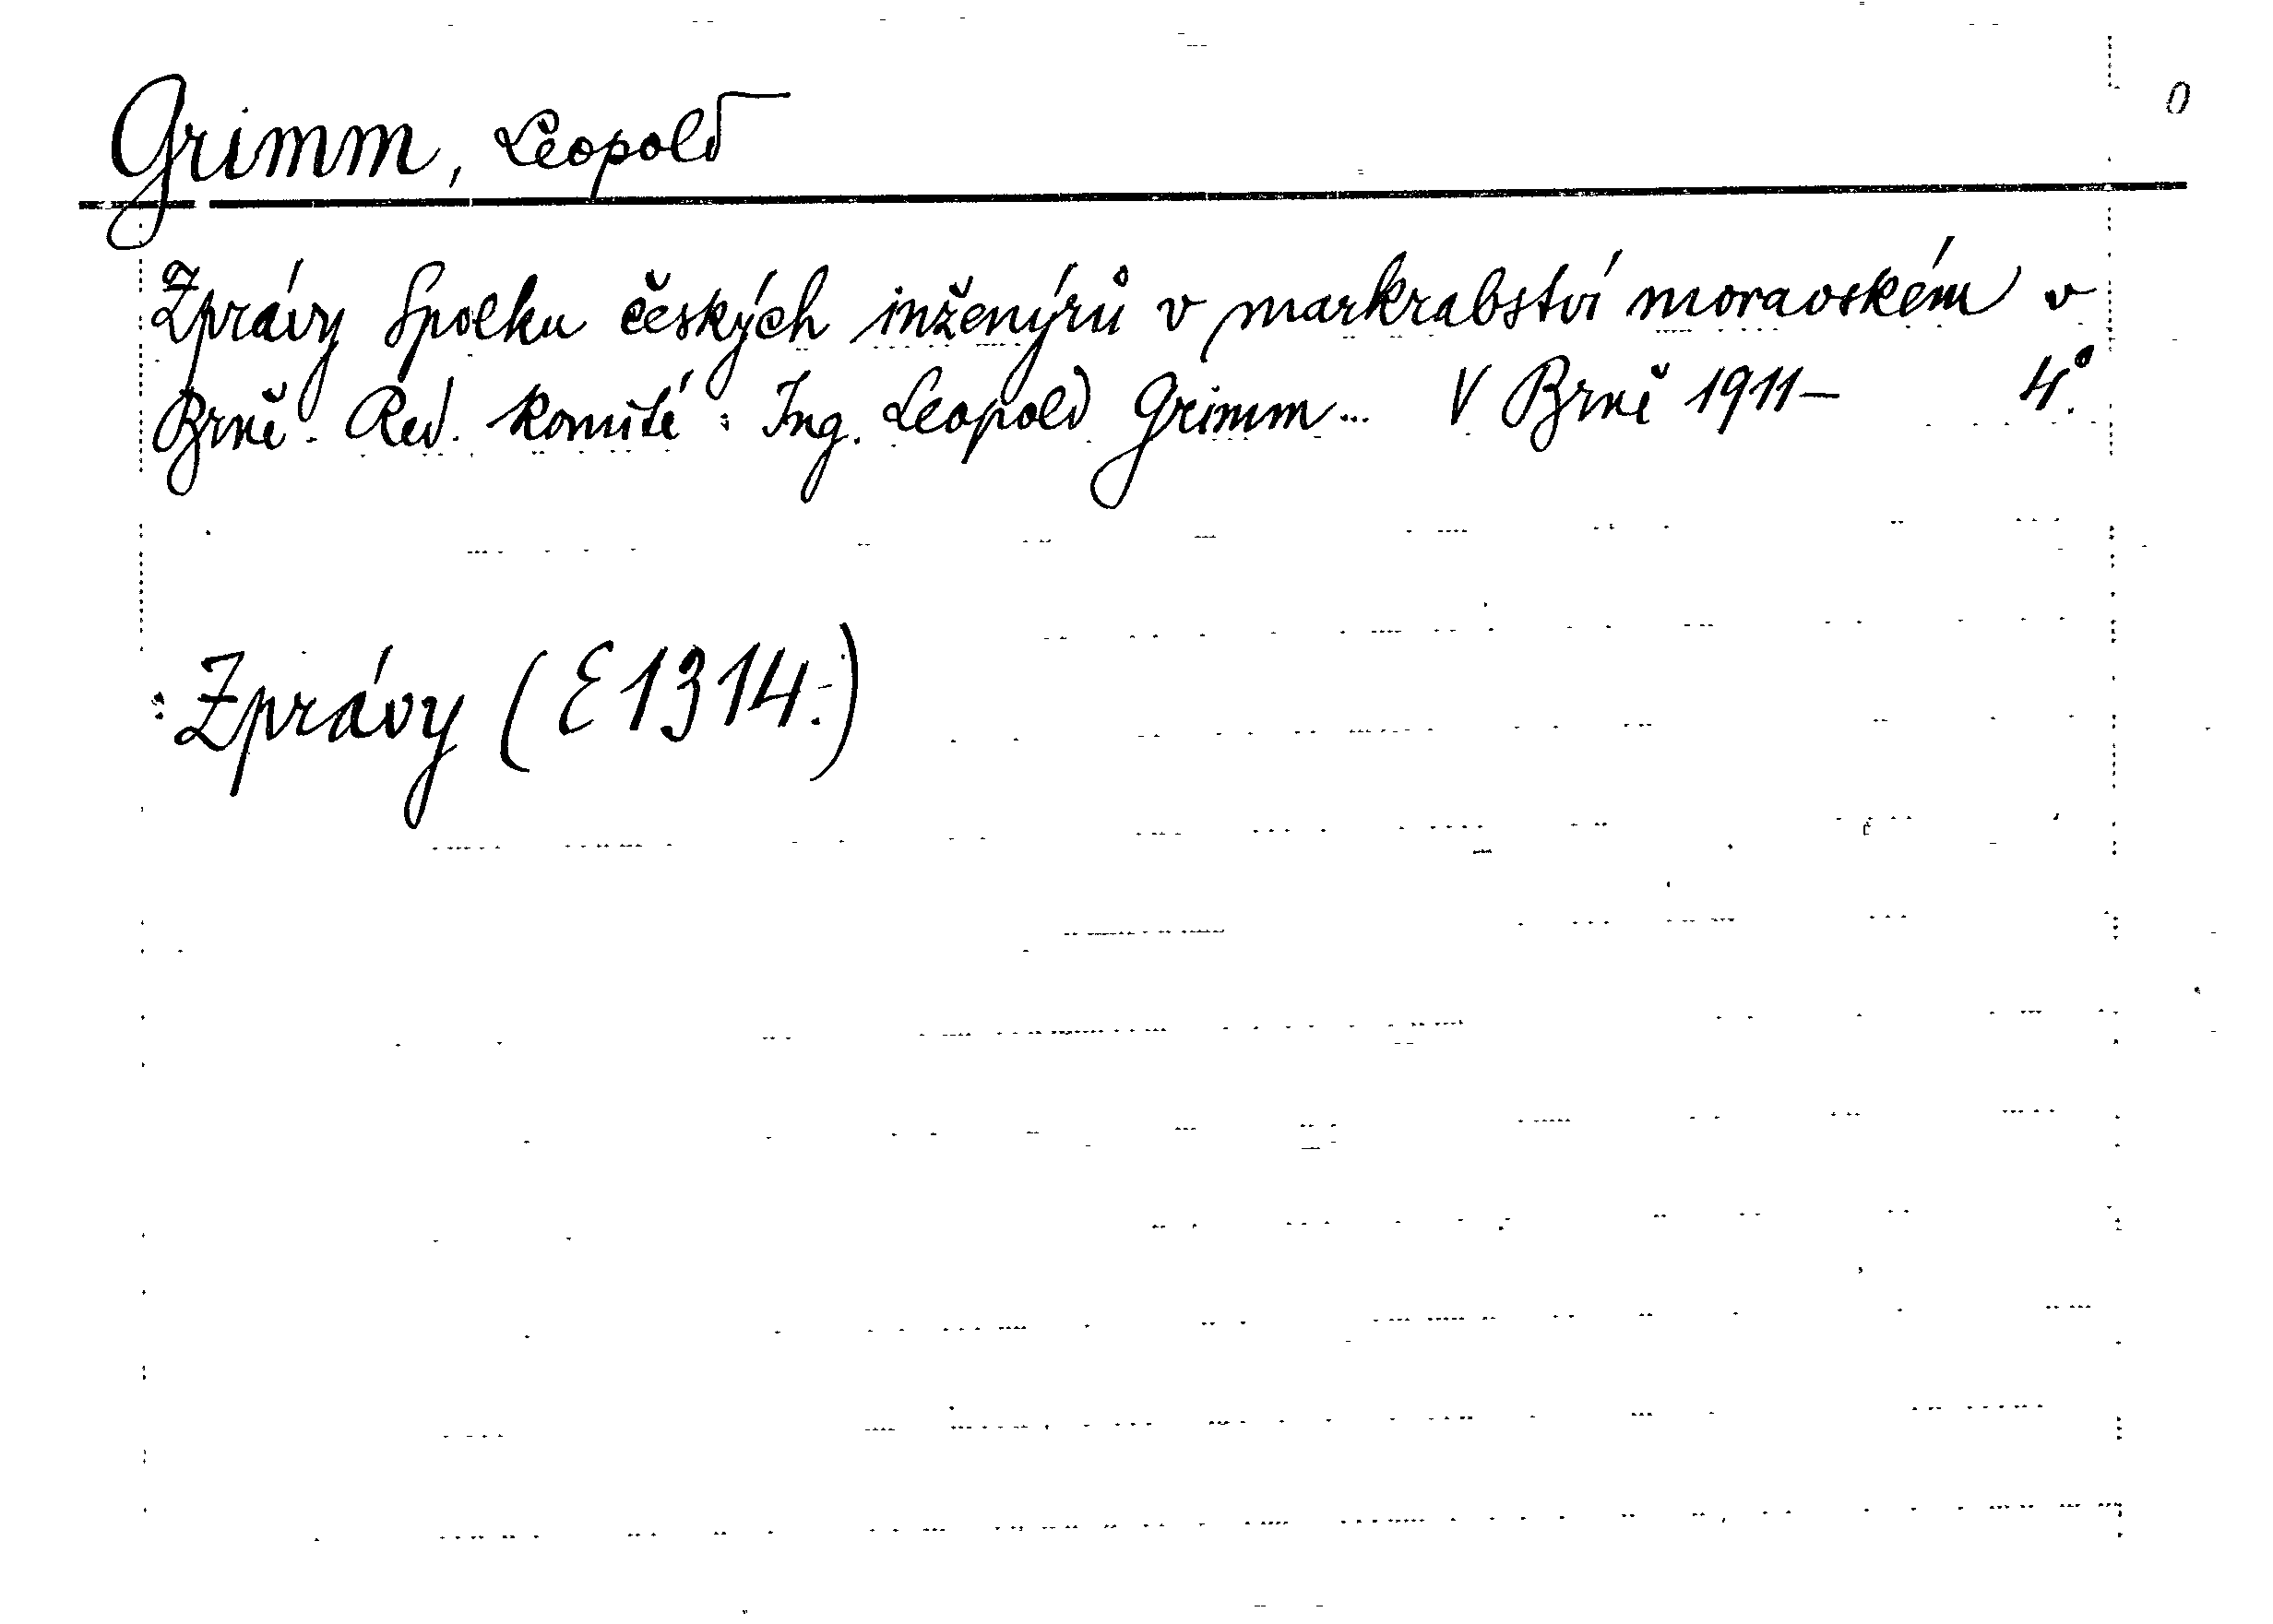 Grimm, Leopold
0
Zprávy Spolku českých inženýrů v markrabství moravském v
Brně. Red. komité: Ing. Leopold Grimm... V Brně 1911– 4°.
: Zprávy (E1314.-)